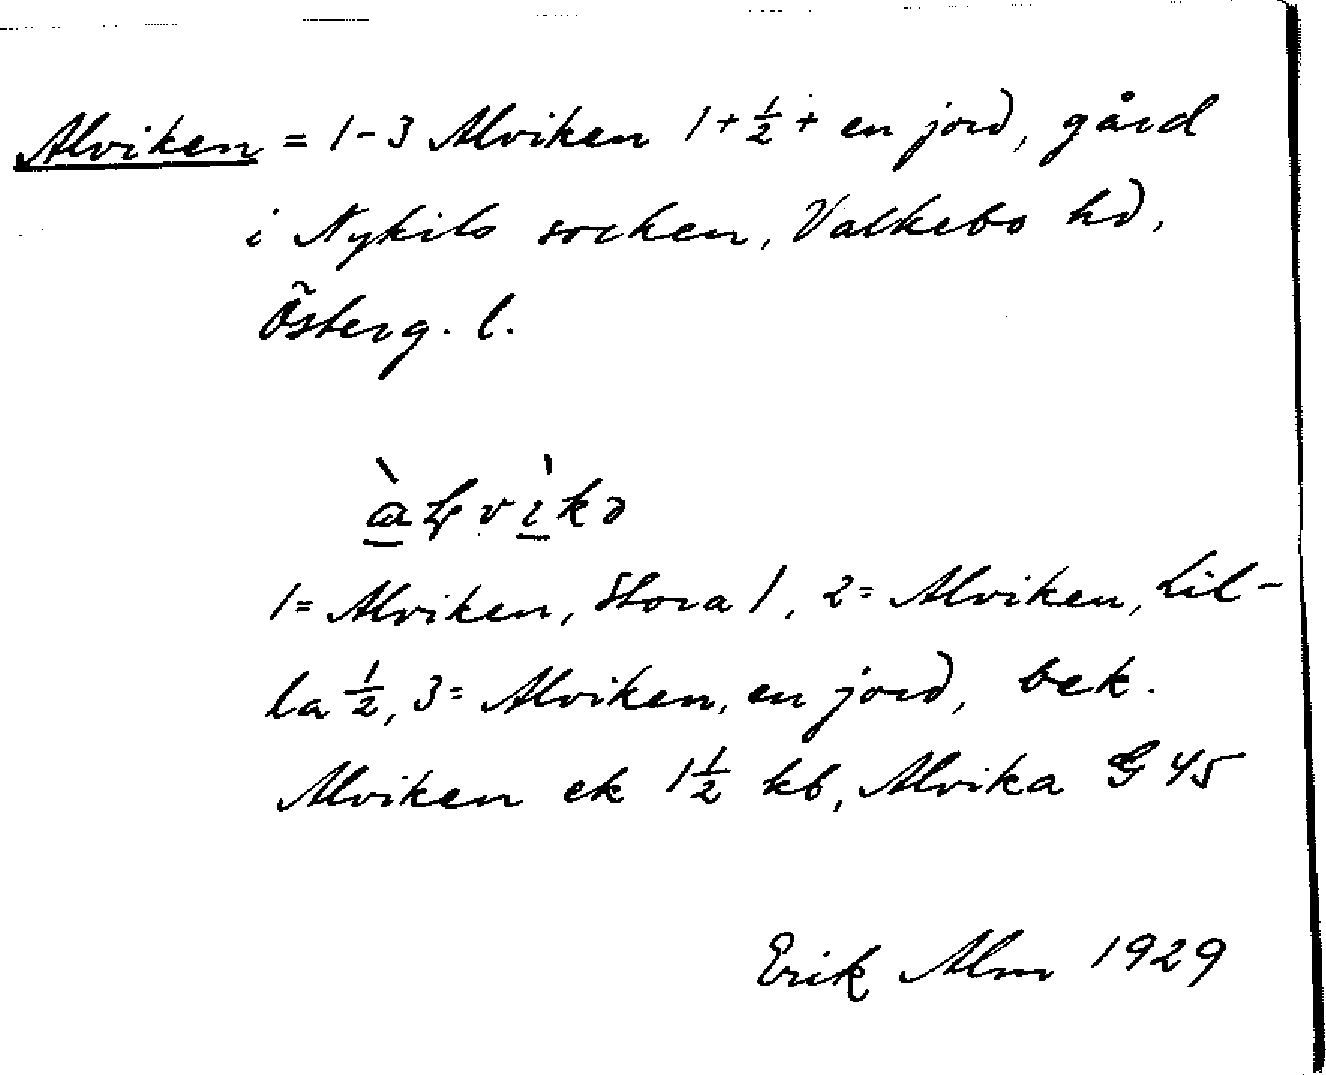 Alviken = 1-3 Alviken 1+½+ en jord, gård
i Nykils socken, Valkebo hd,
Österg. l.
àlvìkə
1= Alviken, Stora 1, 2= Alviken, Lil-
la ½, 3= Alviken, en jord, bek.
Alviken ek 1½ kb, Alvika G 45
Erik Alm 1929